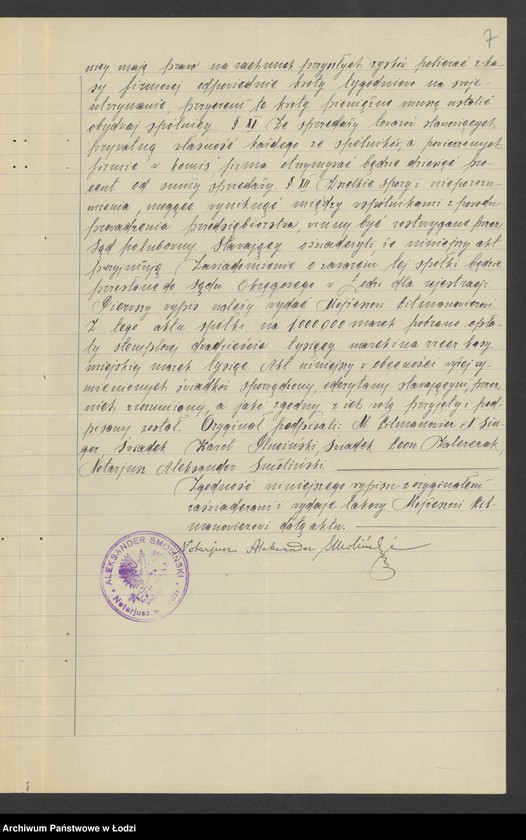 7
nicy mają prawo na rachunek przyszłych zysków pobierać z ka-
sy firmowej odpowiednie kwoty tygodniowo na swoje
utrzymanie, przyczem te kwoty pieniężne muszą ustalić
obydwaj spólnicy. § XI Ze sprzedaży towarów stanowiących
prywatną własność każdego ze spólników, a powierzonych
firmie w komis firma otrzymywać będzie dziesięć pro-
cent od sumy sprzedaży. § XII Wszelkie spory i nieporozu-
mienia mogące wyniknąć między wspólnikami z powodu
prowadzenia przedsiębiorstwa, winny być rozstrzygane przez
Sąd polubowny. Stawający oświadczyli, że niniejszy akt
przyjmują. Zawiadomienie o zawarciu tej spółki będzie
przesłane do Sądu Okręgowego w Łodzi dla rejestracji.
Pierwszy wypis należy wydać Mojżeszowi Zitmanowiczowi.
Z tego aktu spółki na 1.000.000 marek pobrano opła-
ty stemplowej dwadzieścia tysięcy marek i na rzecz kasy
miejskiej marek tysiąc. Akt niniejszy w obecności wyżej wy-
mienionych świadków sporządzony, odczytany stawającym, przez
nich zrozumiany, a jako zgodny z ich wolą przyjęty i pod-
pisany został. Oryginał podpisali: M. Zitmanowicz, N. Sin-
ger świadek Karol świadek Leon
Notarjusz Aleksander Smoliński
Zgodność niniejszego wypisu z oryginałem
zaświadczam i wydaję takowy Mojżeszowi Zit-
manowiczowi datą aktu.
Notarjusz Aleksander Smoliński
ALEKSANDER SMOLIŃSKI
Notarjusz w
Archiwum Państwowe w Łodzi